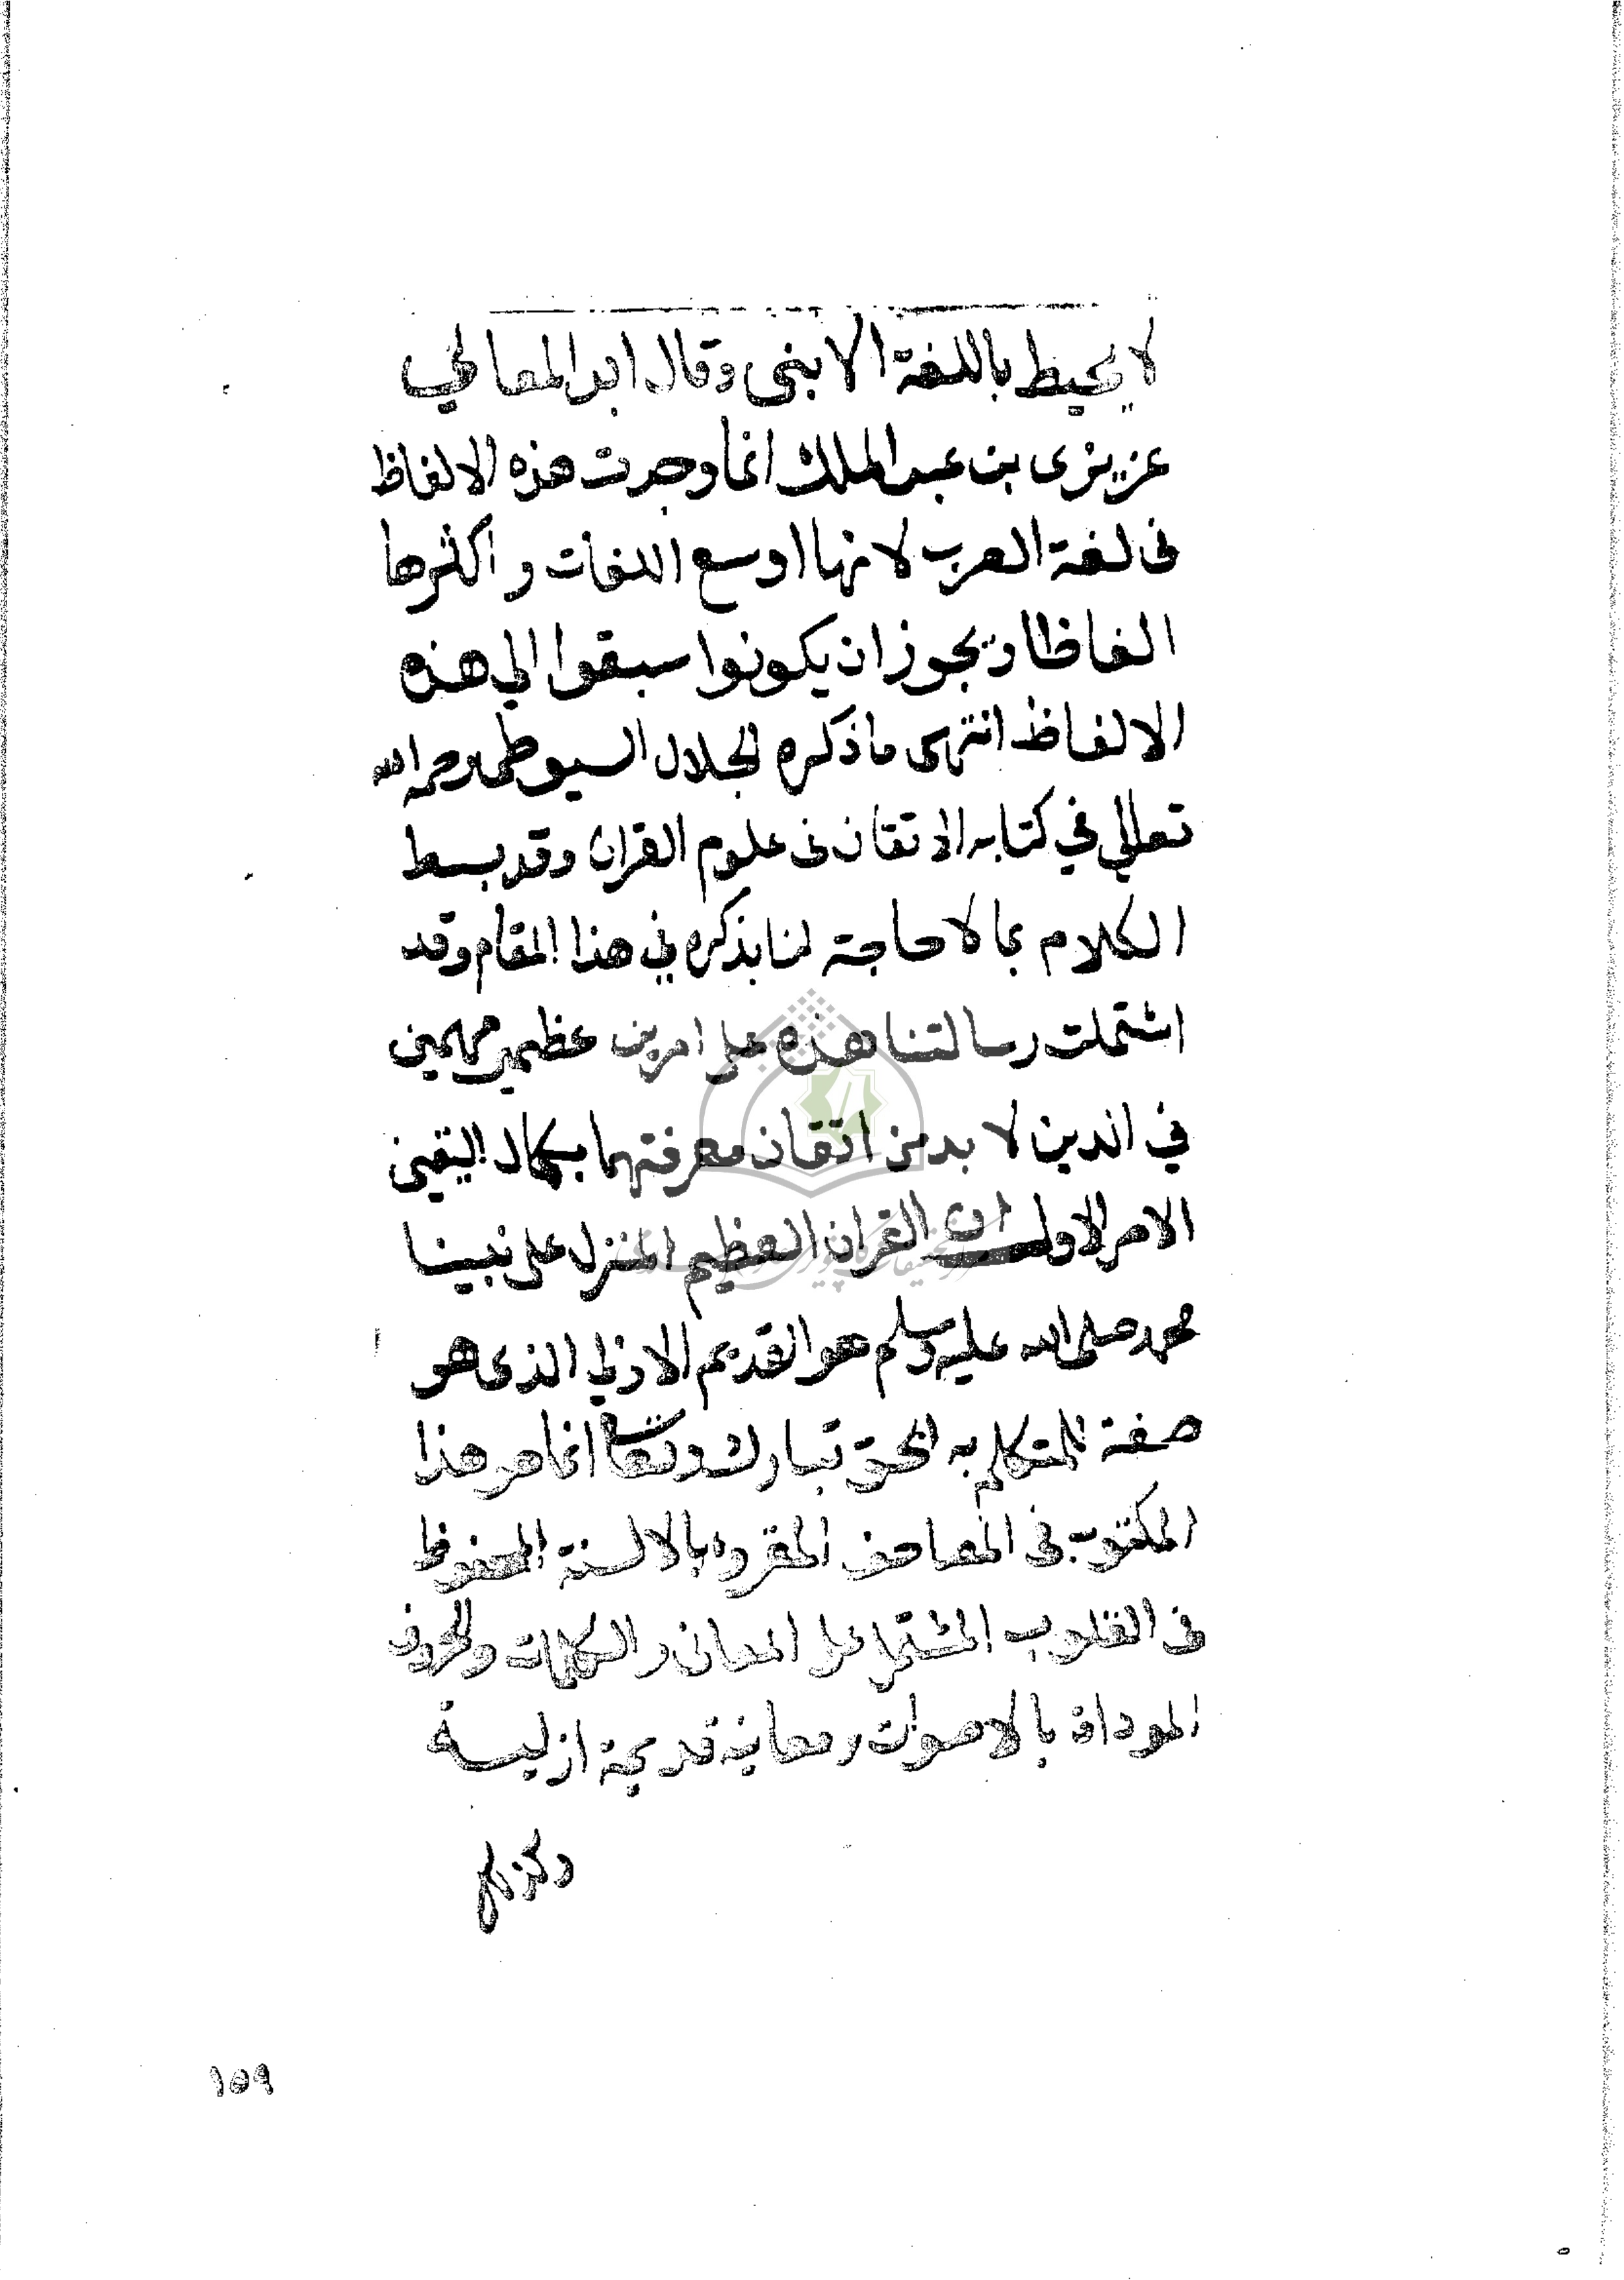 لا يحيط باللغة الا بنى وقال ابو المعالي
عزيزى بن عبد الملك انما وجدت هذه الالفاظ
فى لغة العرب لانها اوسع اللغات واكثرها
الفاظا ويجوز ان يكونوا سبقوا الي هذه
الالفاظ انتهى ما ذكره الجلال السيوطى رحمه الله
تعالي في كتابه الاتقان فى علوم القران وقد بسط
الكلام بما لا حاجة لنا بذكره في هذا المقام وقد
اشتملت رسالتنا هذه على امرين عظيمين مهمين
في الدين لا بد من اتقان معرفتهما بكمال اليقين
الامر الاول ان القران العظيم المنزل على نبينا
محمد صلى الله عليه وسلم هو القديم الازلي الذى هو
صفة المتكلم به الحق تبارك وتعالى انما هو هذا
المكتوب فى المصاحف المقروه بالالسنة المحفوظ
فى القلوب المشتمل على المعانى والكلمات والحروف
الموداة بالاصوات ومعانيه قديمة ازلية
١٥٩